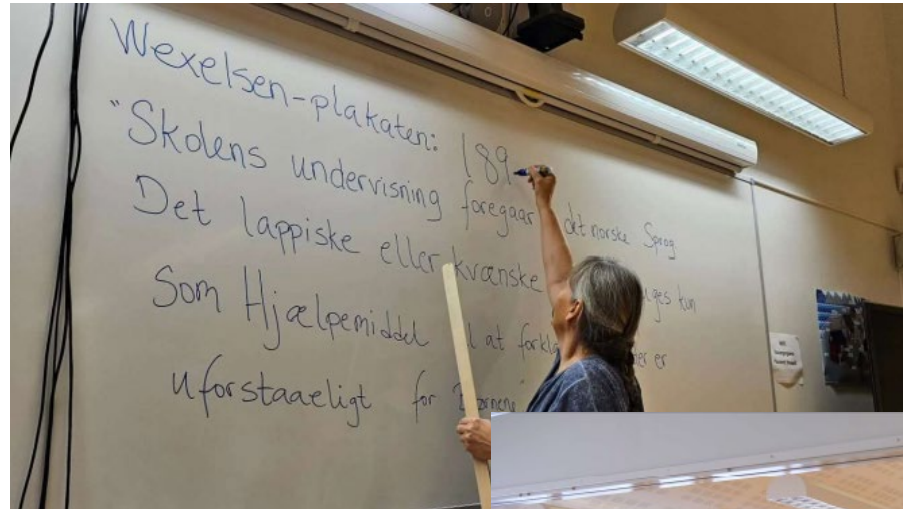 Wexelsen-plakaten: 189
"Skolens undervisning foregaar det norske Sprog
Det lappiske eller kvænske uges kun
Som Hjælpemiddel l at forkla der er
uforstaaeligt for Børnene"